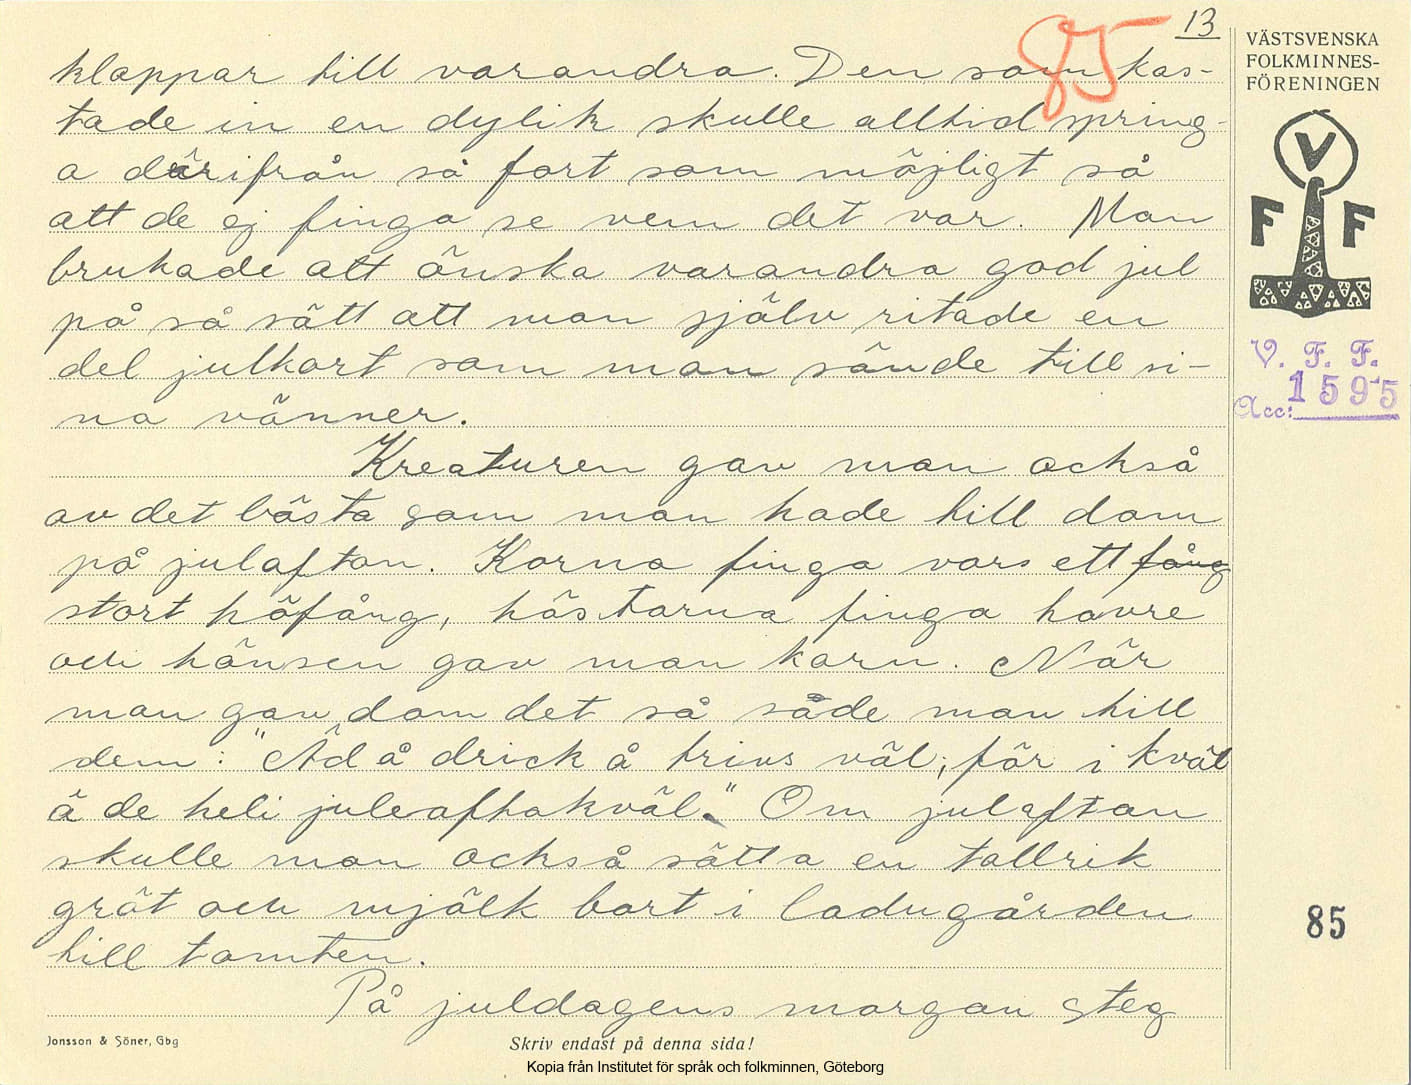 13
85
klappar till varandra. Den som kas-
tade in en dylik skulle alltid spring-
a därifrån så fort som möjligt så
att de ej finga se vem det var. Man
brukade att önska varandra god jul
på så sätt att man själv ritade en
del julkort som man sände till si-
na vänner.
Kreaturen gav man också
av det bästa som man hade till dom
på julafton. Korna finga vars ett fång
stort höfång, hästarna finga havre
och hönsen gav man korn. När
man gav dom det så sade man till
dem: "Äd å drick å trivs väl, för i kväl
ä de heli juleaftakväl." Om julafton
skulle man också sätta en tallrik
gröt och mjölk bort i ladugården
till tomten.
På juldagens morgon steg
VÄSTSVENSKA
FOLKMINNES-
FÖRENINGEN
V
F F
V. F. F.
Acc: 1595
85
Jonsson & Söner, Gbg
Skriv endast på denna sida!
Kopia från Institutet för språk och folkminnen, Göteborg